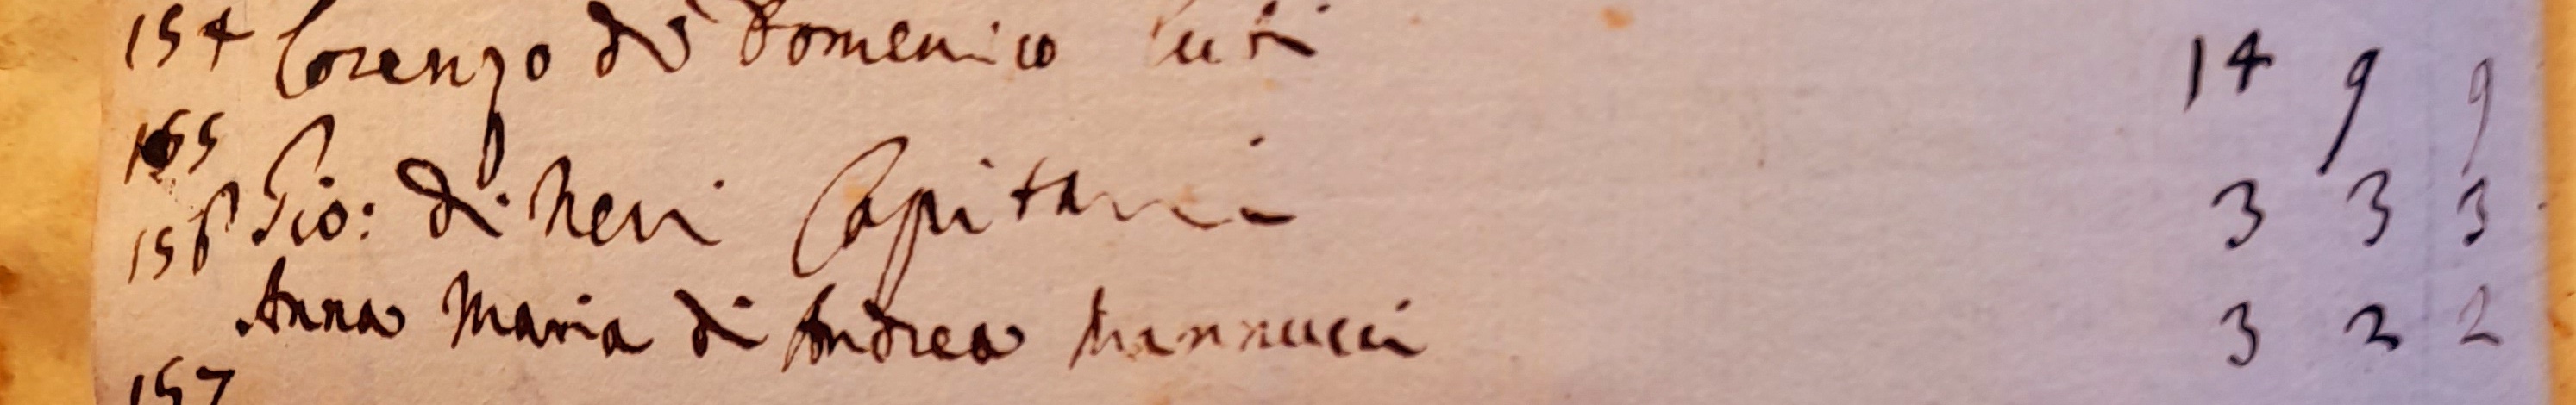 154 Lorenzo di Domenico 14 9 9
155
156 Gio: di Neri Capitani 3 3 3
Anna Maria di Andrea Mannucci 3 2 2
157